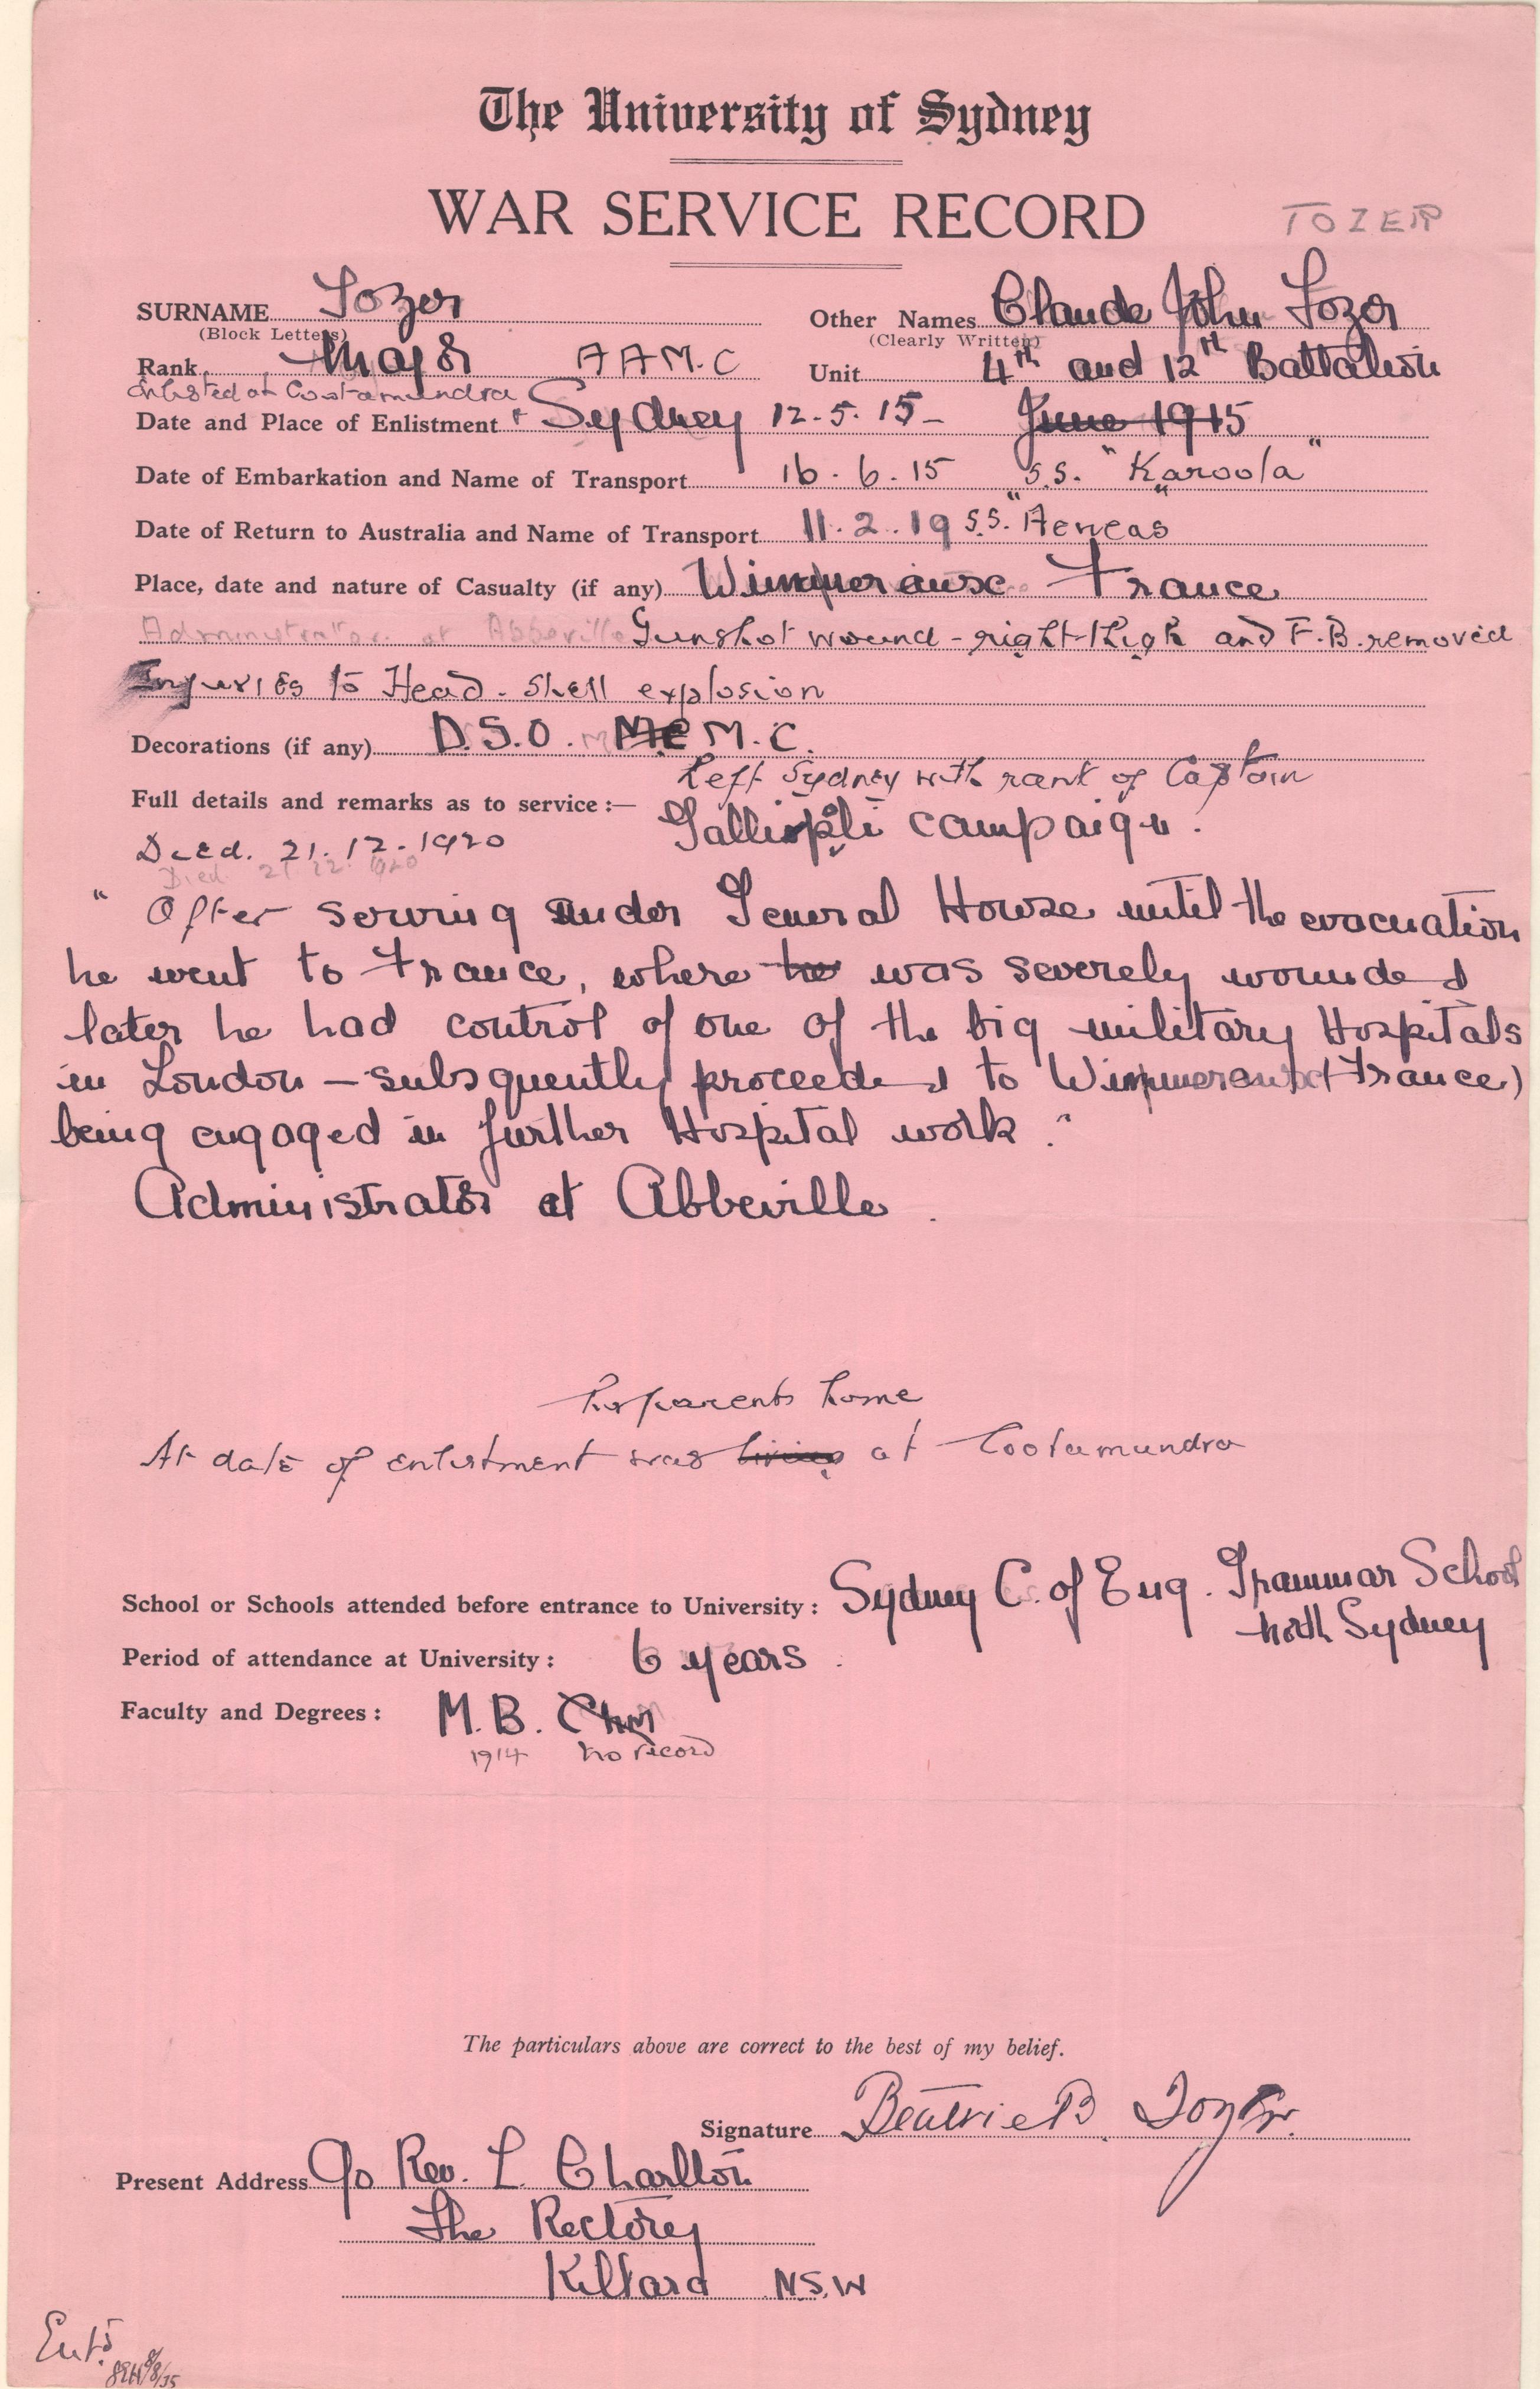 The University of Sydney
WAR SERVICE RECORD
TOZER
SURNAME Tozer
(Block Letters)
Other Names Claude John Tozer
(Clearly Written)
Rank Major A A M. C
Unit 4th and 12th Battalion
Enlisted at Cootamundra
Date and Place of Enlistment + Sydney 12. 5. 15 - June 1915
Date of Embarkation and Name of Transport 16. 6. 15 S.S. "Karoola"
Date of Return to Australia and Name of Transport 11. 2. 19 S.S. "Aeneas"
Place, date and nature of Casualty (if any) Wimmereux France
Administrator at Abbeville Gunshot wound - right thigh and F.B. removed
Injuries to Head - Shell explosion
Decorations (if any) D.S.O. M.C.
Left Sydney with rank of Captain
Full details and remarks as to service:— Gallipoli campaign.
Died. 21. 12. 1920
Died 21 12. 1920
"After serving under General Howse until the evacuation
he went to France, where he was severely wounded
later he had control of one of the big military Hospitals
in London - subsquently proceeded to Wimmereux (France)
being engaged in further Hospital work."
Administrator at Abbeville.
his parents home
At date of enlistment was living at Cootamundra
School or Schools attended before entrance to University: Sydney C. of Eng. Grammar School
North Sydney
Period of attendance at University: 6 years.
Faculty and Degrees: M.B. ChM
1914 no record
The particulars above are correct to the best of my belief.
Signature Beatrice B. Tozer.
Present Address c/o Rev. L. Charlton
The Rectory
Killara N.S.W
Entd
8/8/35